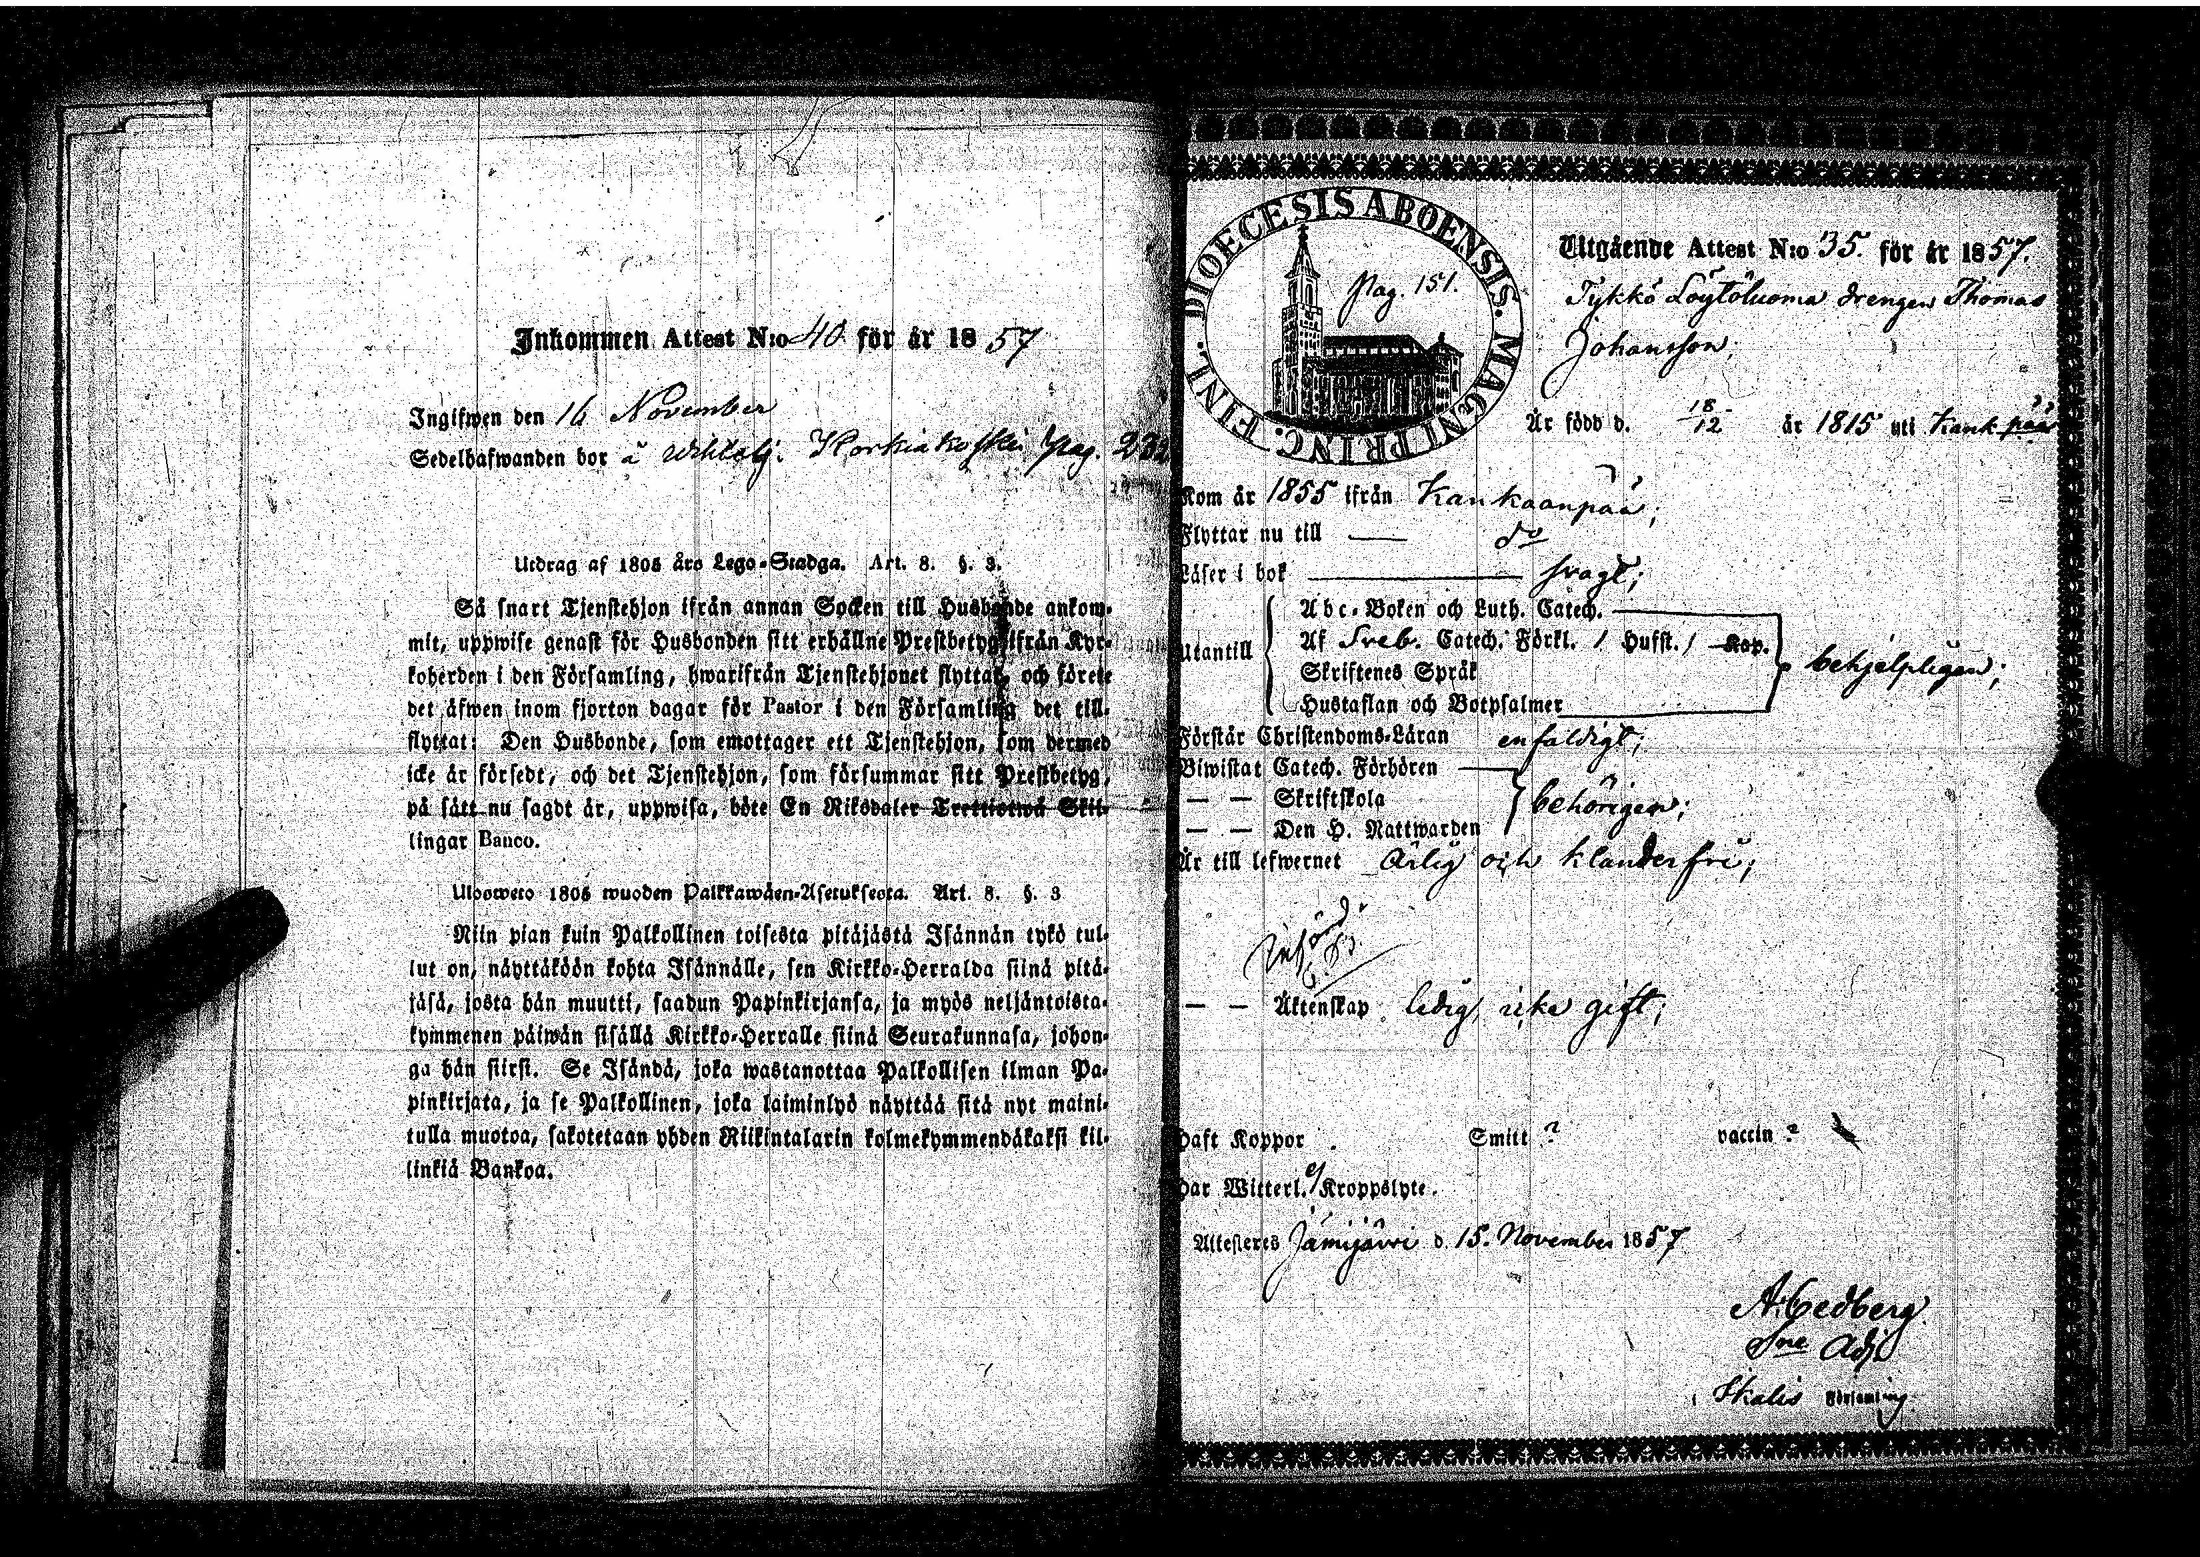 Inkommen Attest N:o 40 för år 1857
Ingifwen den 16 November
Sedelhafwanden bor å Wihtelj. Korkiakoski Pag. 232
Utdrag af 1805 års Lego-Stadga. Art. 8. §. 3.
Så snart Tjenstehjon ifrån annan Socken till Husbonde ankom-
mit, uppwise genast för Husbonden sitt erhållne Prestbetyg ifrån Kyr-
koherden i den Församling, hwarifrån Tjenstehjonet flyttat, och förete
det äfwen inom fjorton dagar för Pastor i den Församling det till-
flyttat: Den Husbonde, som emottager ett Tjenstehjon, som dermed
icke är försedt, och det Tjenstehjon, som försummar sitt Prestbetyg,
på sätt nu sagdt är, uppwisa, böte En Riksdaler Trettiotwå Skil-
lingar Banco.
Ulosweto 1805 wuoden Palkkawäen-Asetuksesta. Art. 8. §. 3
Niin pian kuin Palkollinen toisesta pitäjästä Isännän tykö tul-
lut on, näyttäköön kohta Isännälle, sen Kirkko-Herralda siinä pitä-
jäsä, josta hän muutti, saadun Papinkirjansa, ja myös neljäntoista-
kymmenen päiwän sisällä Kirkko-Herralle siinä Seurakunnasa, johon-
ga hän siirsi. Se Isändä, joka wastanottaa Palkollisen ilman Pa-
pinkirjata, ja se Palkollinen, joka laiminlyö näyttää sitä nyt maini-
tulla muotoa, sakotetaan yhden Riikintalarin kolmekymmendäkaksi kil-
linkiä Bankoa.
DIOECESIS ABOENSIS. MAGNI PRINC. FINL.
Pag. 151.
Utgående Attest N:o 35. för år 1857.
Tykkö Löytöluoma drengen Thomas
Johansson;
Är född d. 18/12 år 1815 uti Kankpää
Kom år 1855 ifrån Kankaanpää;
Flyttar nu till — do
Läser i bok — svagt;
Utantill
Abc-Boken och Luth. Catech.
Af Sveb. Catech. Förkl. / Hufst. / Kap.
Skriftenes Språk
Hustaflan och Botpsalmer
behjelpligen;
Förstår Christendoms-Läran enfaldigt;
Biwistat Catech. Förhören
— — Skriftskola
— — Den H. Nattwarden
behörigen;
Är till lefwernet Ärlig och klanderfri;
— — Äktenskap ledig, icke gift;
Haft Koppor Smitt ? vaccin ?
Har Witterl. ej Kroppslyte.
Attesteras Jämijärvi d. 15. November 1857
A. Cedberg
Sne Adj
i Ikalis Församling